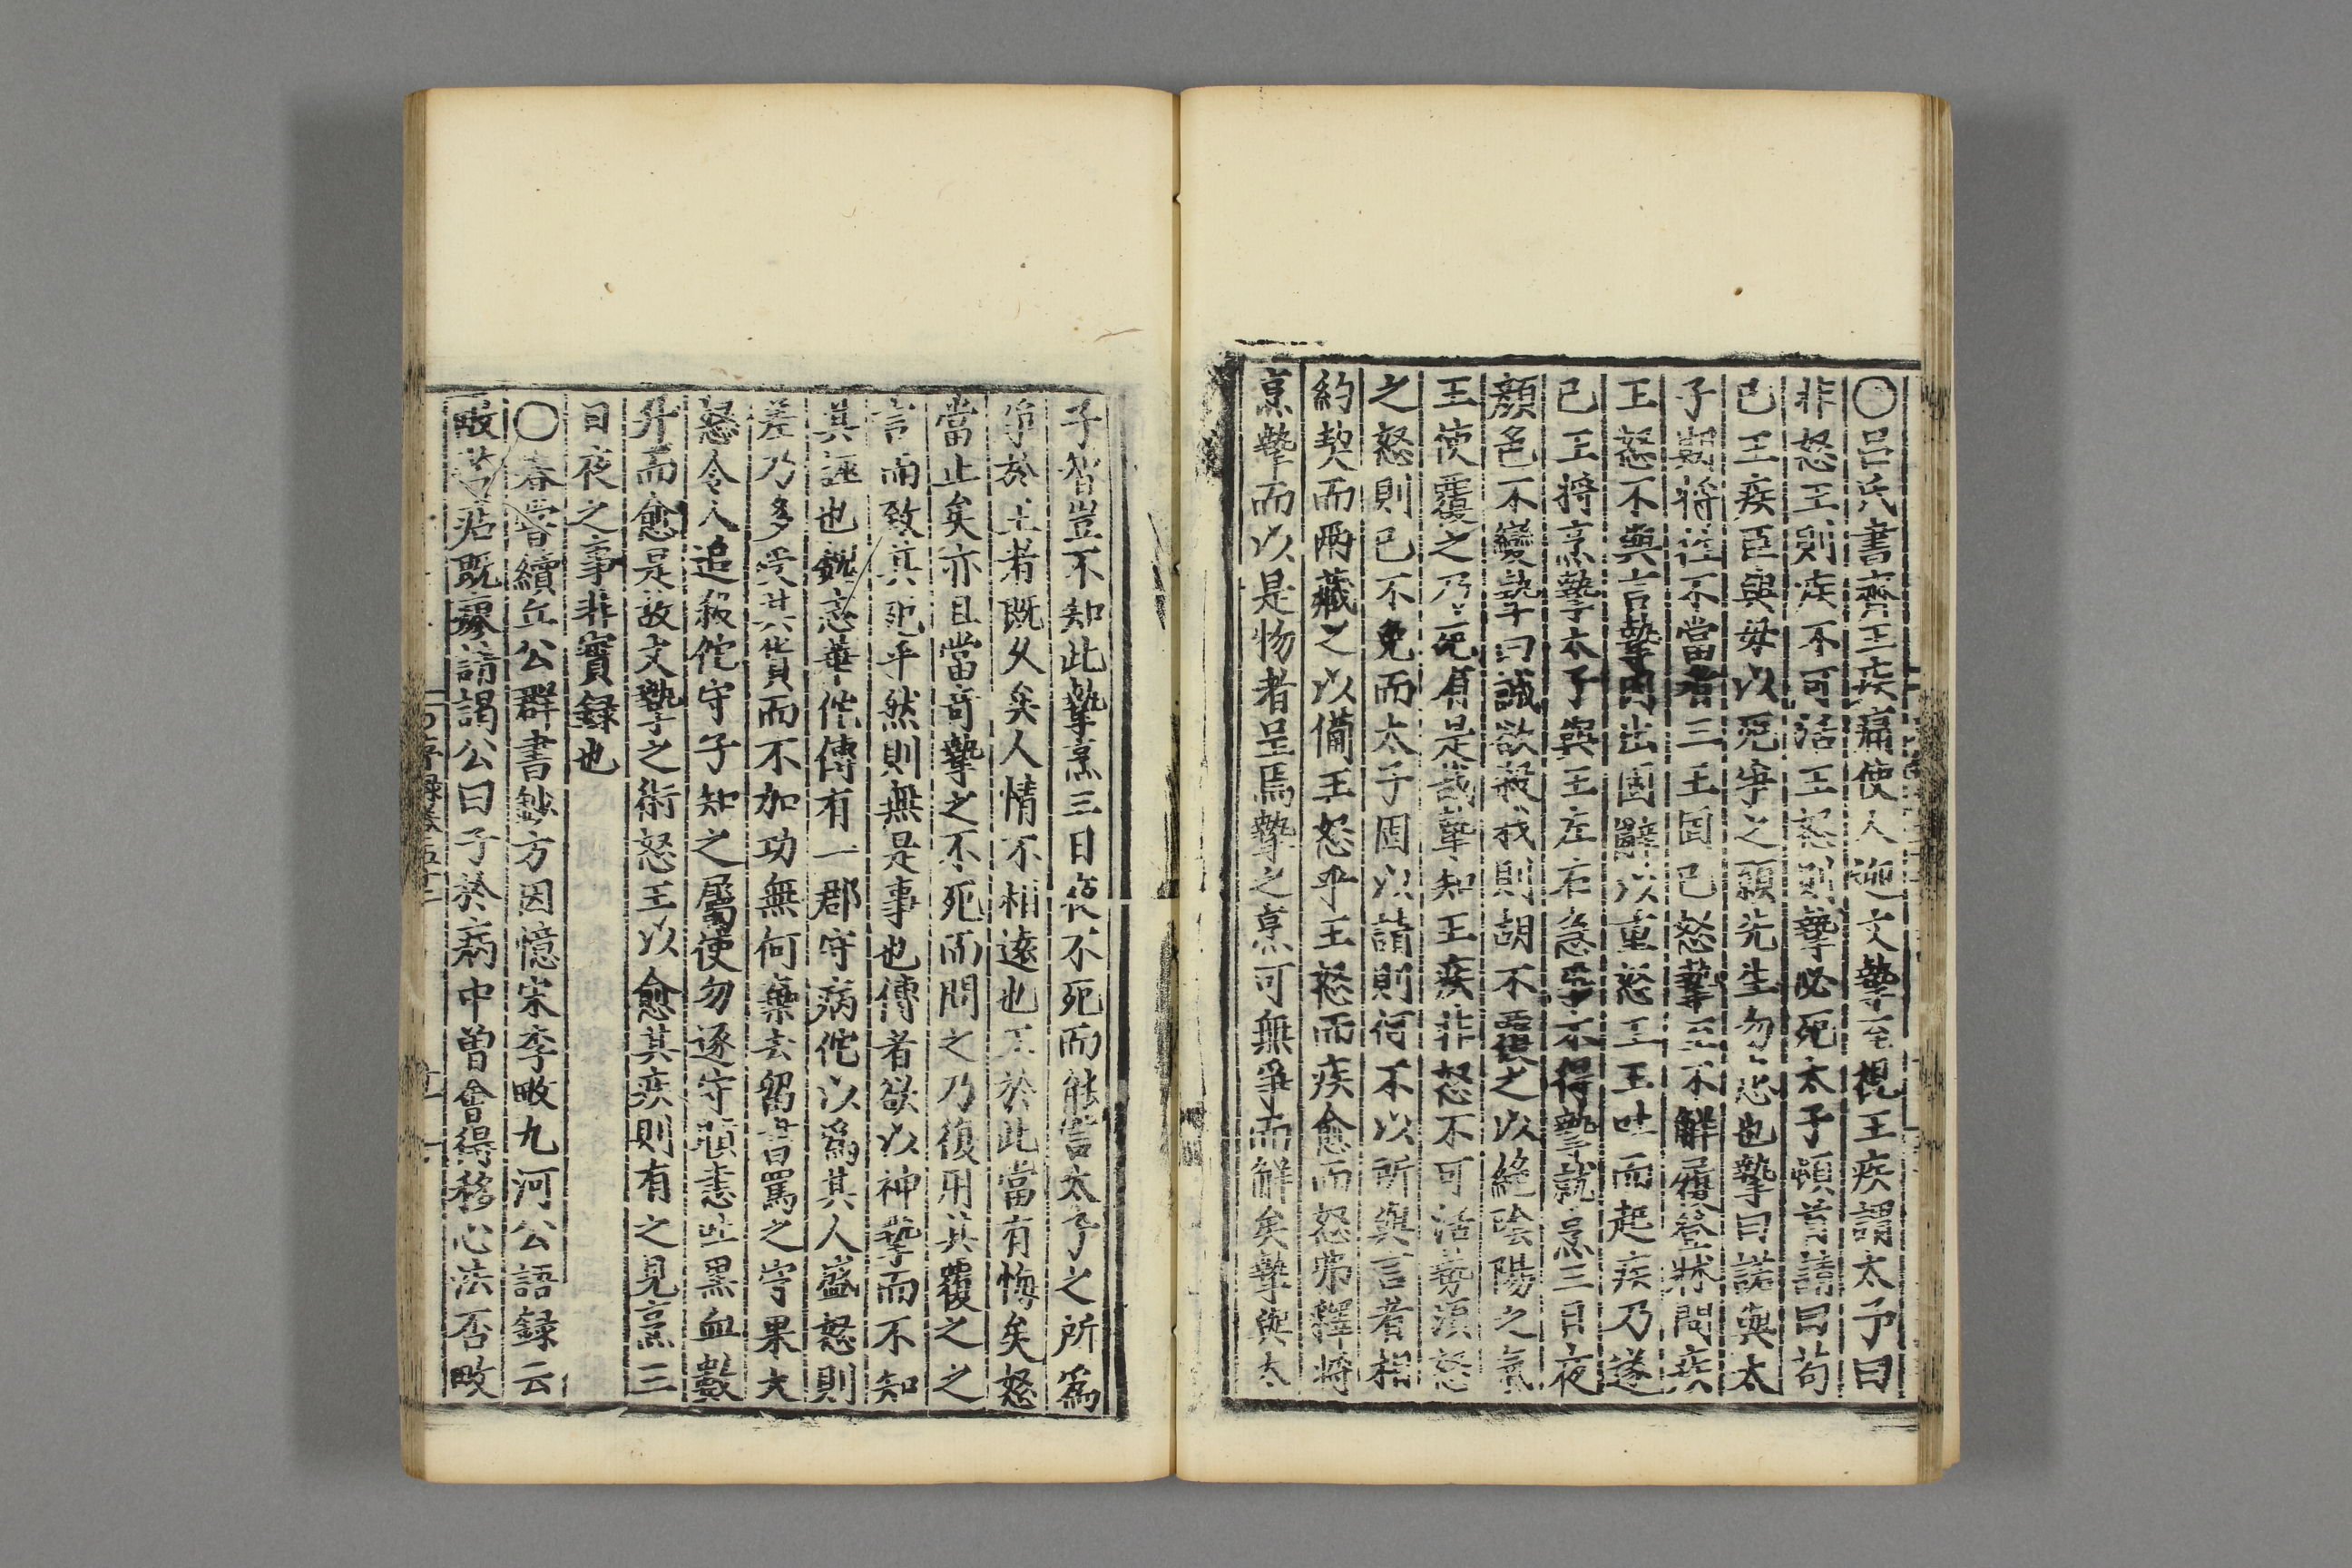 ○呂氏書齊王疾痏使人迎文摯至視王疾謂太子曰
非怒王則疾不可活王怒則摯必死太子頓首請曰苟
已王疾臣與母以死爭之願先生勿恐也摯曰諾與太
子期將往不當者三王固已怒摯至不解屨登牀問疾
王怒不與言摯因出固辭以重怒王王吐而起疾乃遂
已王將烹摯太子與王左右急爭不得摯就烹三日夜
顏色不變摯曰誠欲殺我則胡不覆之以絶陰陽之氣
王使覆之乃死有是哉摯知王疾非怒不可活勢須怒
之怒則已不免而太子固以請則何不以所與言者相
約契而兩藏之以備王怒乎王怒而疾愈而怒弗釋將
烹摯而以是物者呈焉摯之烹可無爭而解矣摯與太
子智豈不知此摯烹三日夜不死而能言太子之所爲
爭於王者既久矣人情不相遠也王於此當有悔矣怒
當止矣亦且當奇摯之不死而問之乃復用其覆之之
言而致其死乎然則無是事也傳者欲以神摯而不知
其誣也魏志華佗傳有一郡守病佗以爲其人盛怒則
差乃多受其貨而不加功無何棄去留書罵之守果大
怒令人追殺佗守子知之屬使勿逐守瞋恚吐黑血數
升而愈是故文摯之術怒王以愈其疾則有之見烹三
日夜之事非實録也
○春嘗續丘公群書鈔方因憶宋李畋九河公語録云
畋苦痁既瘳請謁公曰子於病中曽會得移心法否畋